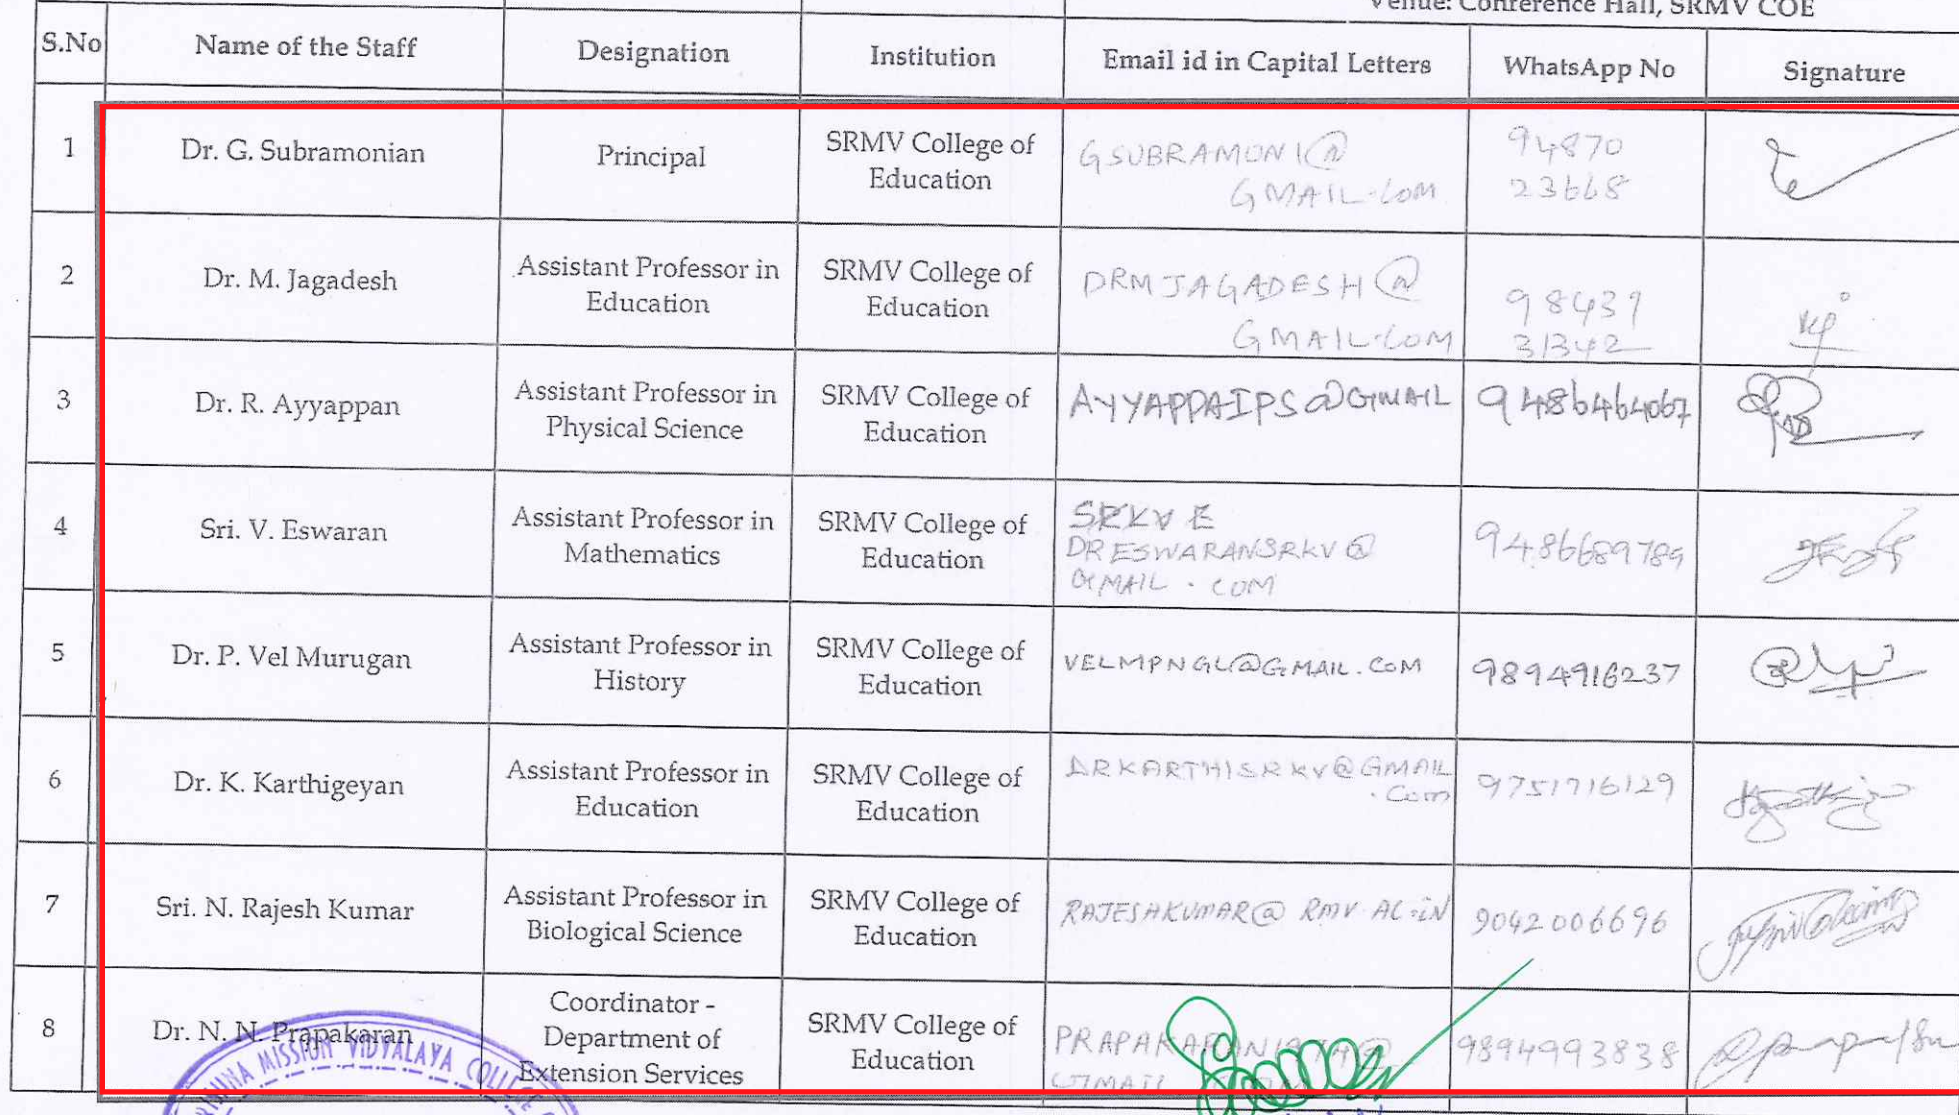 Venue: Conference Hall, SRMV COE
S.No Name of the Staff Designation Institution Email id in Capital Letters WhatsApp No Signature
1 Dr. G. Subramonian Principal SRMV College of Education GSUBRAMONI@ GMAIL.COM 94870 23668
2 Dr. M. Jagadesh Assistant Professor in Education SRMV College of Education DRMJAGADESH@ GMAIL.COM 98439 31342
3 Dr. R. Ayyappan Assistant Professor in Physical Science SRMV College of Education AYYAPPAIPS@GMAIL 9486464067
4 Sri. V. Eswaran Assistant Professor in Mathematics SRMV College of Education SRKV E DRESWARANSRKV@ GMAIL.COM 9486689789
5 Dr. P. Vel Murugan Assistant Professor in History SRMV College of Education VELMPNGL@GMAIL.COM 9894916237
6 Dr. K. Karthigeyan Assistant Professor in Education SRMV College of Education DRKARTHISRKV@GMAIL .Com 9751716129
7 Sri. N. Rajesh Kumar Assistant Professor in Biological Science SRMV College of Education RAJESHKUMAR@RMV.AC.IN 9042006696
8 Dr. N. N. Prapakaran Coordinator - Department of Extension Services SRMV College of Education 9894993838
MISSION VIDYALAYA COLLEGE